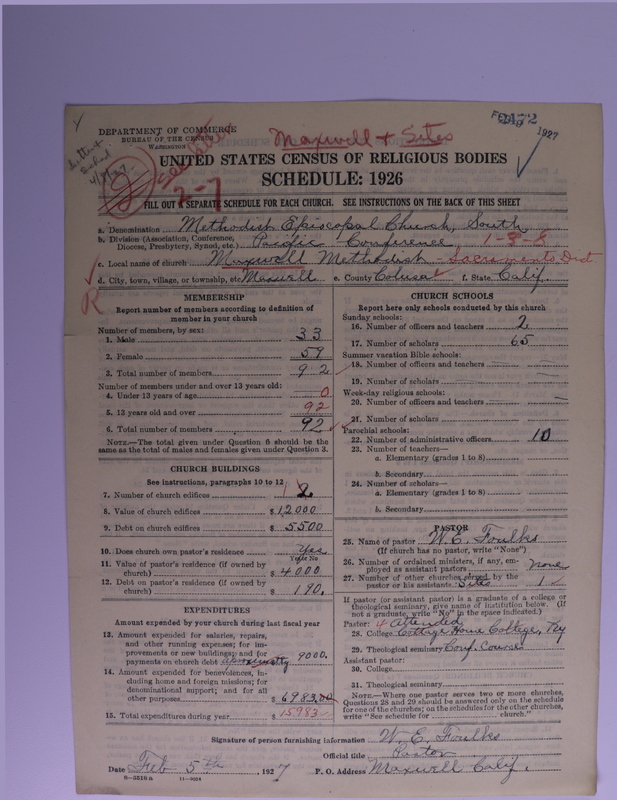 4
DEPARTMENT OF COMMERCE
BUREAU OF THE CENSUS
WASHINGTON
Maxwell + Sites
1927
UNITED STATES CENSUS OF RELIGIOUS BODIES
SCHEDULE: 1926
2-7
FILL OUT A SEPARATE SCHEDULE FOR EACH CHURCH. SEE INSTRUCTIONS ON THE BACK OF THIS SHEET
a. Denomination Methodist Episcopal Church, South
b. Division (Association, Conference, Diocese, Presbytery, Synod, etc.) Pacific Conference 1-8-8
c. Local name of church Maxwell Methodist - Sacramento Dist
d. City, town, village, or township, etc. Maxwell e. County Colusa f. State Calif.
R
MEMBERSHIP
Report number of members according to definition of
member in your church
Number of members, by sex:
1. Male 33
2. Female 59
3. Total number of members 92
Number of members under and over 13 years old:
4. Under 13 years of age 0
5. 13 years old and over 92
6. Total number of members 92
NOTE.—The total given under Question 6 should be
same as the total of males and females given under Question 3.
CHURCH BUILDINGS
See instructions, paragraphs 10 to 12
7. Number of church edifices 1 2
8. Value of church edifices $ 12000
9. Debt on church edifices $ 5500
10. Does church own pastor's residence Yes
Yes or No
11. Value of pastor's residence (if owned by
church) $ 4000
12. Debt on pastor's residence (if owned by
church) $ 190.
EXPENDITURES
Amount expended by your church during last fiscal year
13. Amount expended for salaries, repairs,
and other running expenses; for im-
provements or new buildings; and for
payments on church debt 9000.
14. Amount expended for benevolences, in-
cluding home and foreign missions; for
denominational support; and for all
other purposes $ 6983.00
15. Total expenditures during year $ 15983
CHURCH SCHOOLS
Report here only schools conducted by this church
Sunday schools:
16. Number of officers and teachers 2
17. Number of scholars 65
Summer vacation Bible schools:
18. Number of officers and teachers
19. Number of scholars
Week-day religious schools:
20. Number of officers and teachers
21. Number of scholars
Parochial schools:
22. Number of administrative officers 10
23. Number of teachers—
a. Elementary (grades 1 to 8)
b. Secondary
24. Number of scholars—
a. Elementary (grades 1 to 8)
b. Secondary
PASTOR
25. Name of pastor W. E. Foulks
(If church has no pastor, write "None")
26. Number of ordained ministers, if any, em-
ployed as assistant pastors none
27. Number of other churches served by the
pastor or his assistants Sites 1
If pastor (or assistant pastor) is a graduate of a college or
theological seminary, give name of institution below. (If
not a graduate, write "No" in the space indicated.)
Pastor: 4 attended
28. College Cottage Home College, Ky
29. Theological seminary Conf. Course
Assistant pastor:
30. College
31. Theological seminary
NOTE.—Where one pastor serves two or more churches,
Questions 28 and 29 should be answered only on the schedule
for one of the churches; on the schedules for the other churches,
write "See schedule for church."
Signature of person furnishing information W. E. Foulks
Official title Pastor
Date Feb 5th, 1927 P. O. Address Maxwell Calif.